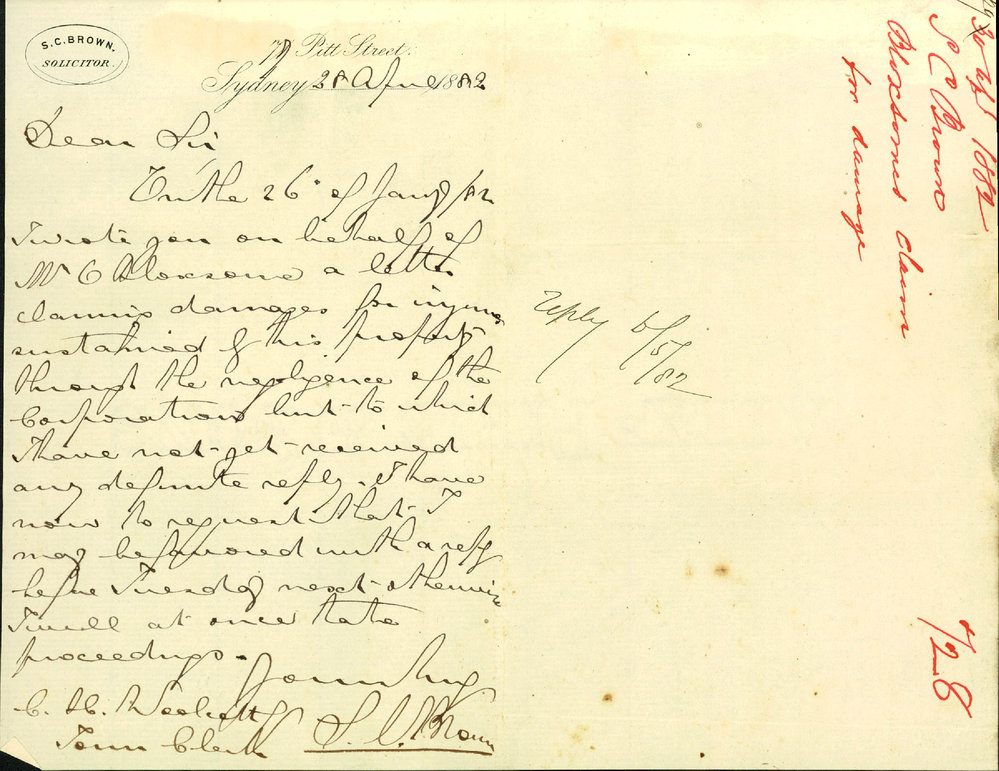 S.C. BROWN.
SOLICITOR.
77 Pitt Street.
Sydney 28 April 1882
Dear Sir
On the 26th of Jany /82
I wrote you on behalf of
Mr C Bloxsome a letter
claiming damages for injuries
sustained by his property
through the negligence of the
Corporation but to which
I have not yet received
any definite reply. I have
now to request that I
may be favoured with a reply
before Tuesday next otherwise
I will at once take
proceedings.
Yours truly
S. C. Brown
C. H. Woolcott
Town Clerk
reply 6/5/82
30 Apl 1882
S C Brown
Bloxsomes Claim
for damage